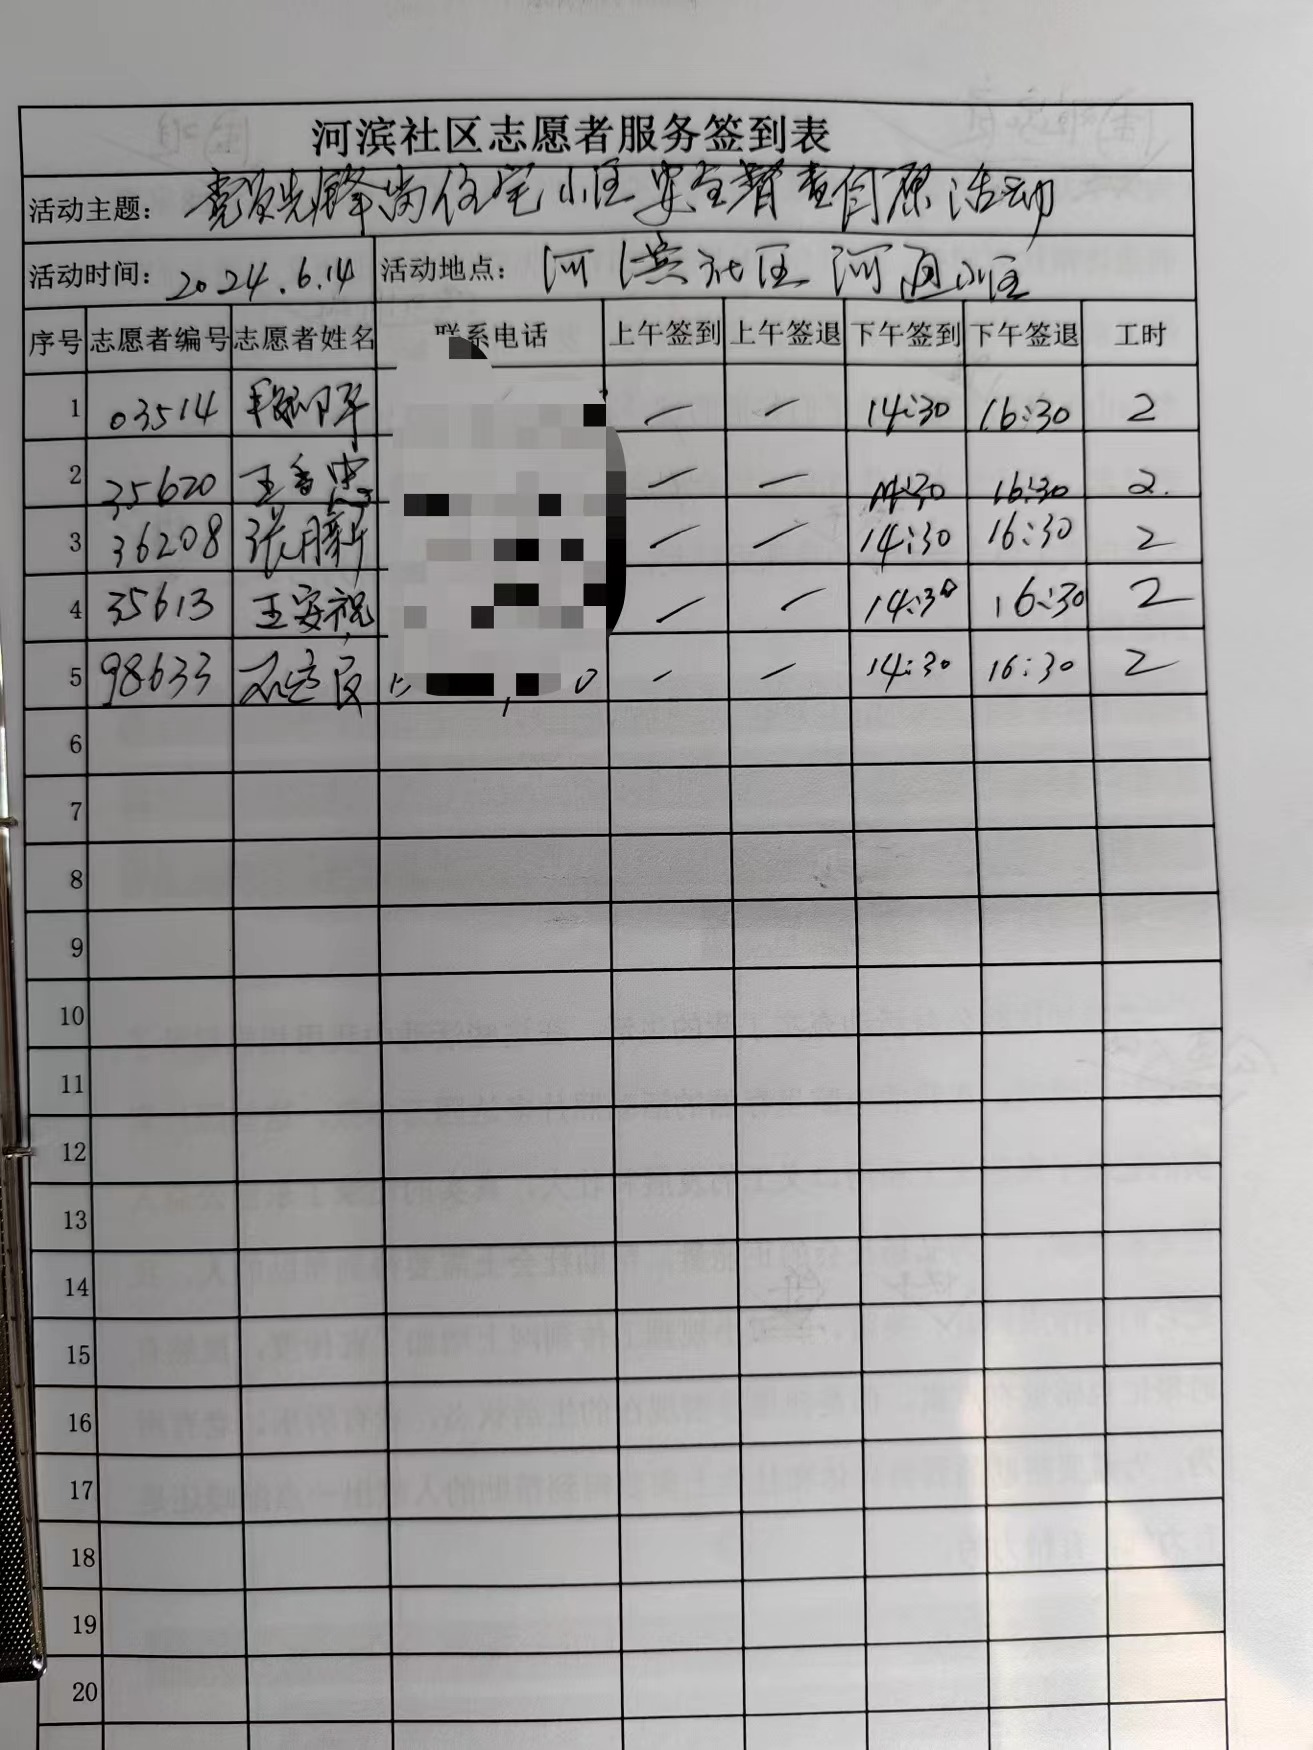 河滨社区志愿者服务签到表
活动主题：党员先锋岗住宅小区安全督查自愿活动
活动时间：2024.6.14 活动地点：河滨社区河通小区
序号 志愿者编号 志愿者姓名 联系电话 上午签到 上午签退 下午签到 下午签退 工时
1 03514 — — 14:30 16:30 2
2 35620 王香忠 — — 14:30 16:30 2.
3 36208 张月新 — — 14:30 16:30 2
4 35613 王安祝 — — 14:30 16:30 2
5 98633 — — 14:30 16:30 2
6
7
8
9
10
11
12
13
14
15
16
17
18
19
20